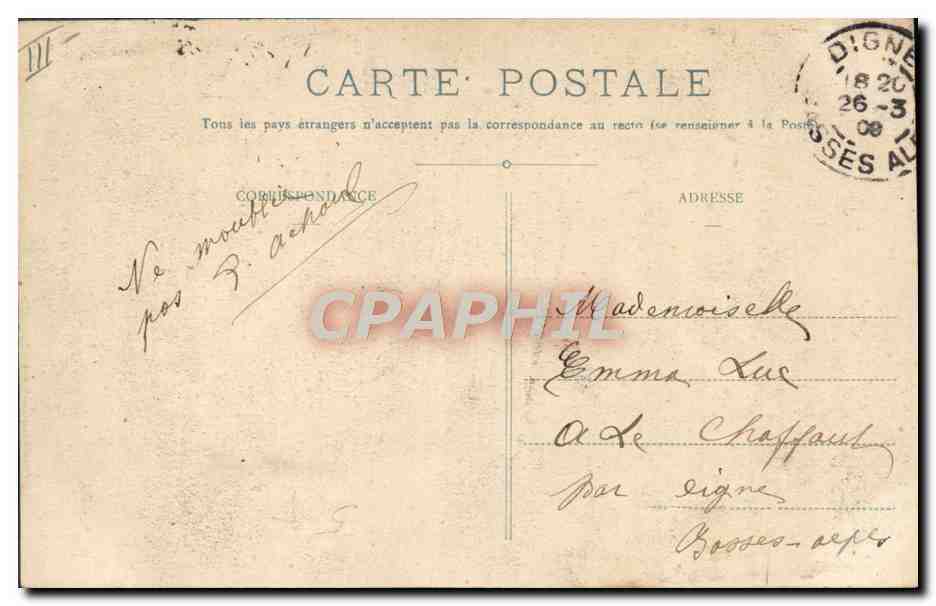 III
CARTE POSTALE
Tous les pays étrangers n'acceptent pas la correspondance au recto (se renseigner à la Poste
DIGNE
18 20
26 -3
09
BASSES ALP
CORRESPONDANCE
ADRESSE
Ne moublie
pas
CPAPHIL
Mademoiselle
Emma Luc
a Le Chaffaut
par digne
Basses-alpes